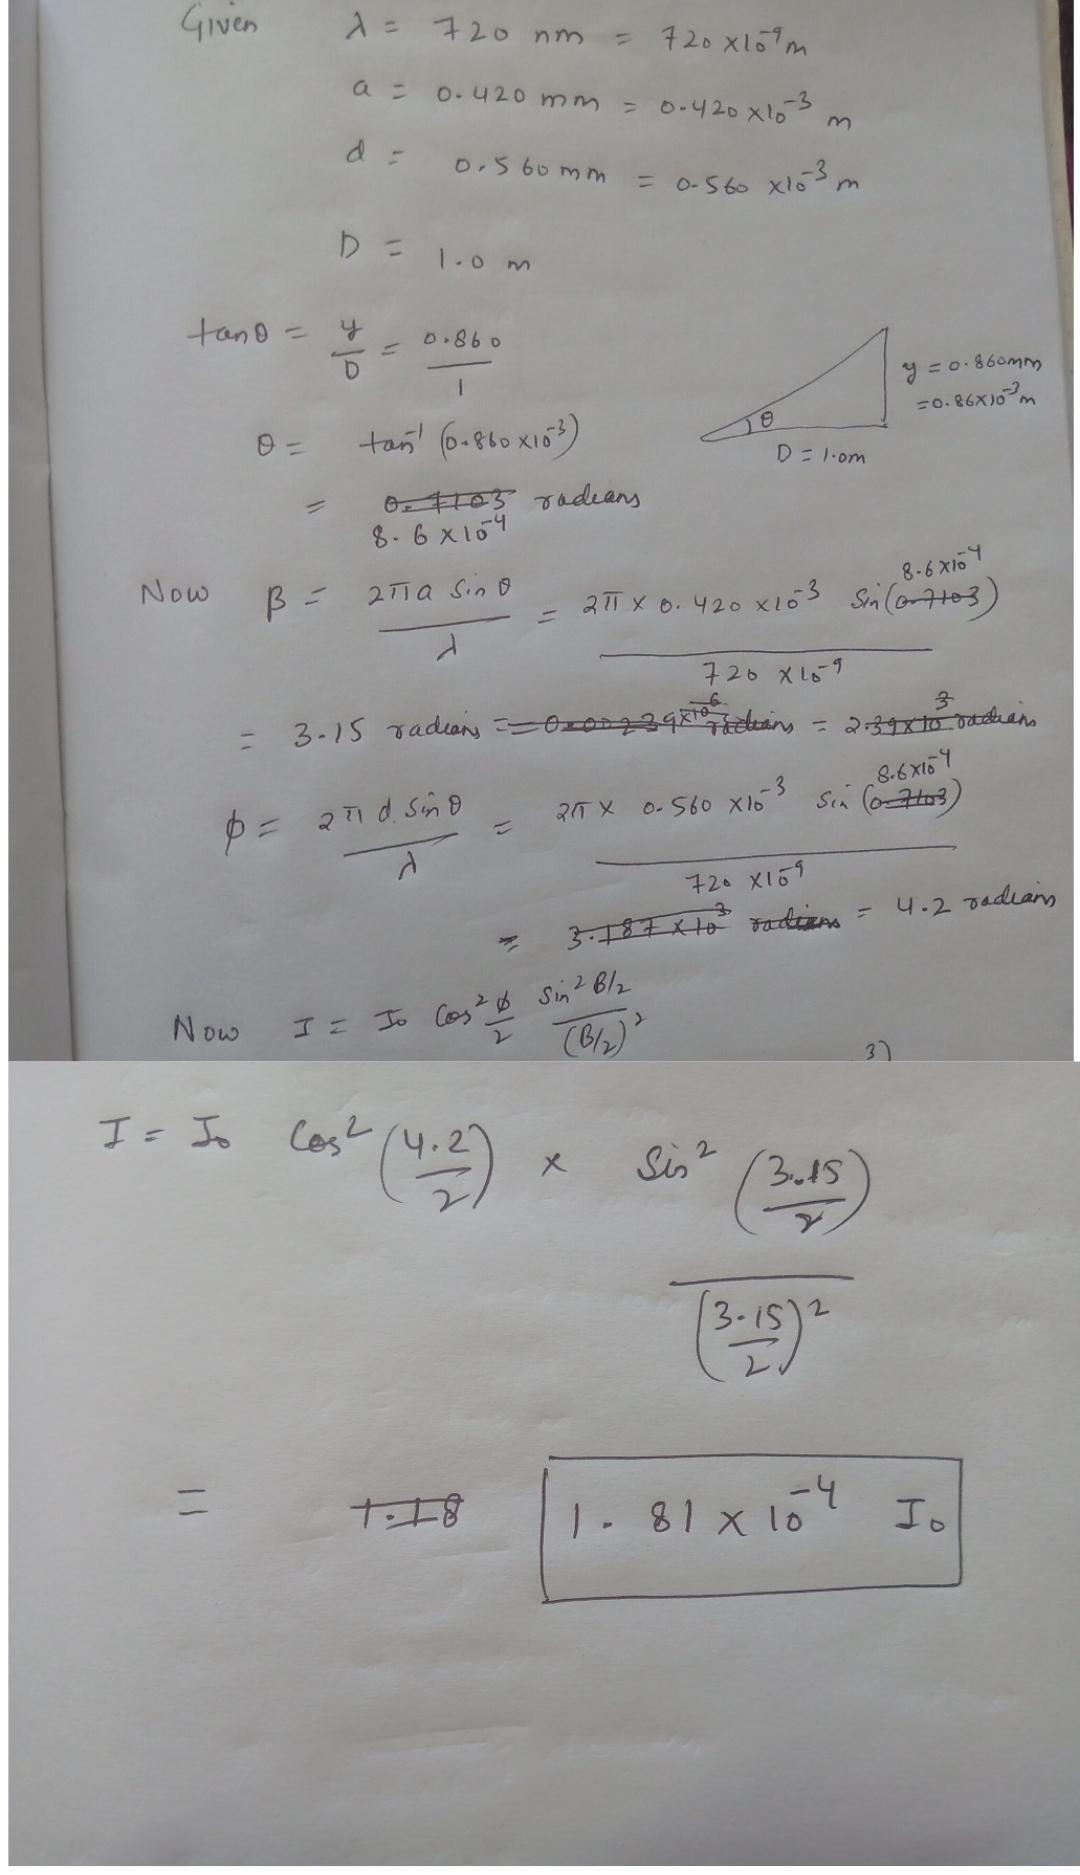 Given λ = 720 nm = 720 x10⁻⁹ m
a = 0.420 mm = 0.420 x10⁻³ m
d = 0.560 mm = 0.560 x10⁻³ m
D = 1.0 m
tanθ = y/D = 0.860/1
y = 0.860mm
= 0.86x10⁻³m
θ
D = 1.0m
θ = tan⁻¹ (0.860 x10⁻³)
= 0.7103 radians
8.6 x10⁻⁴
8.6 x10⁻⁴
Now β = 2πa Sinθ/λ = 2π x 0.420 x10⁻³ Sin(0.7103)/720 x10⁻⁹
= 3.15 radians = = 0.00239 x10⁶ radians = 2.39x10³ radians
8.6x10⁻⁴
φ = 2π d Sinθ/λ = 2π x 0.560 x10⁻³ Sin (0.7103)/720 x10⁻⁹
= 3.187 x 10³ radians = 4.2 radians
Now I = I₀ Cos² φ/2 Sin² β/2/(β/2)²
3)
I = I₀ Cos² (4.2/2) x Sin² (3.15/2)/(3.15/2)²
= 1.18 1.81 x 10⁻⁴ I₀